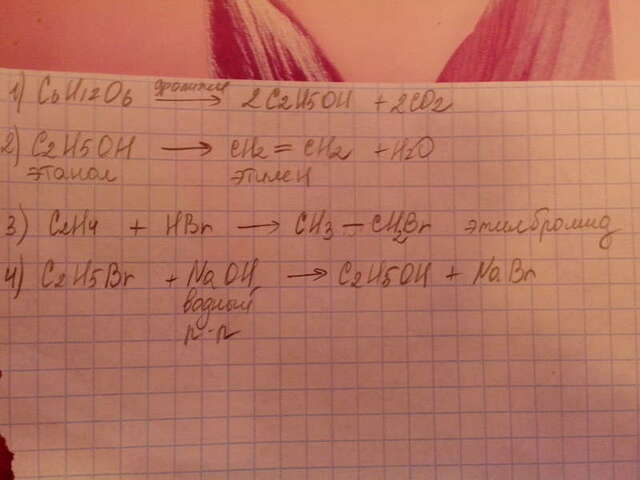 1) C6H12O6 брожение → 2C2H5OH + 2CO2
2) C2H5OH → CH2 = CH2 + H2O
этанол этилен
3) C2H4 + HBr → CH3 – CH2Br этилбромид
4) C2H5Br + NaOH → C2H5OH + NaBr
водный
р-р